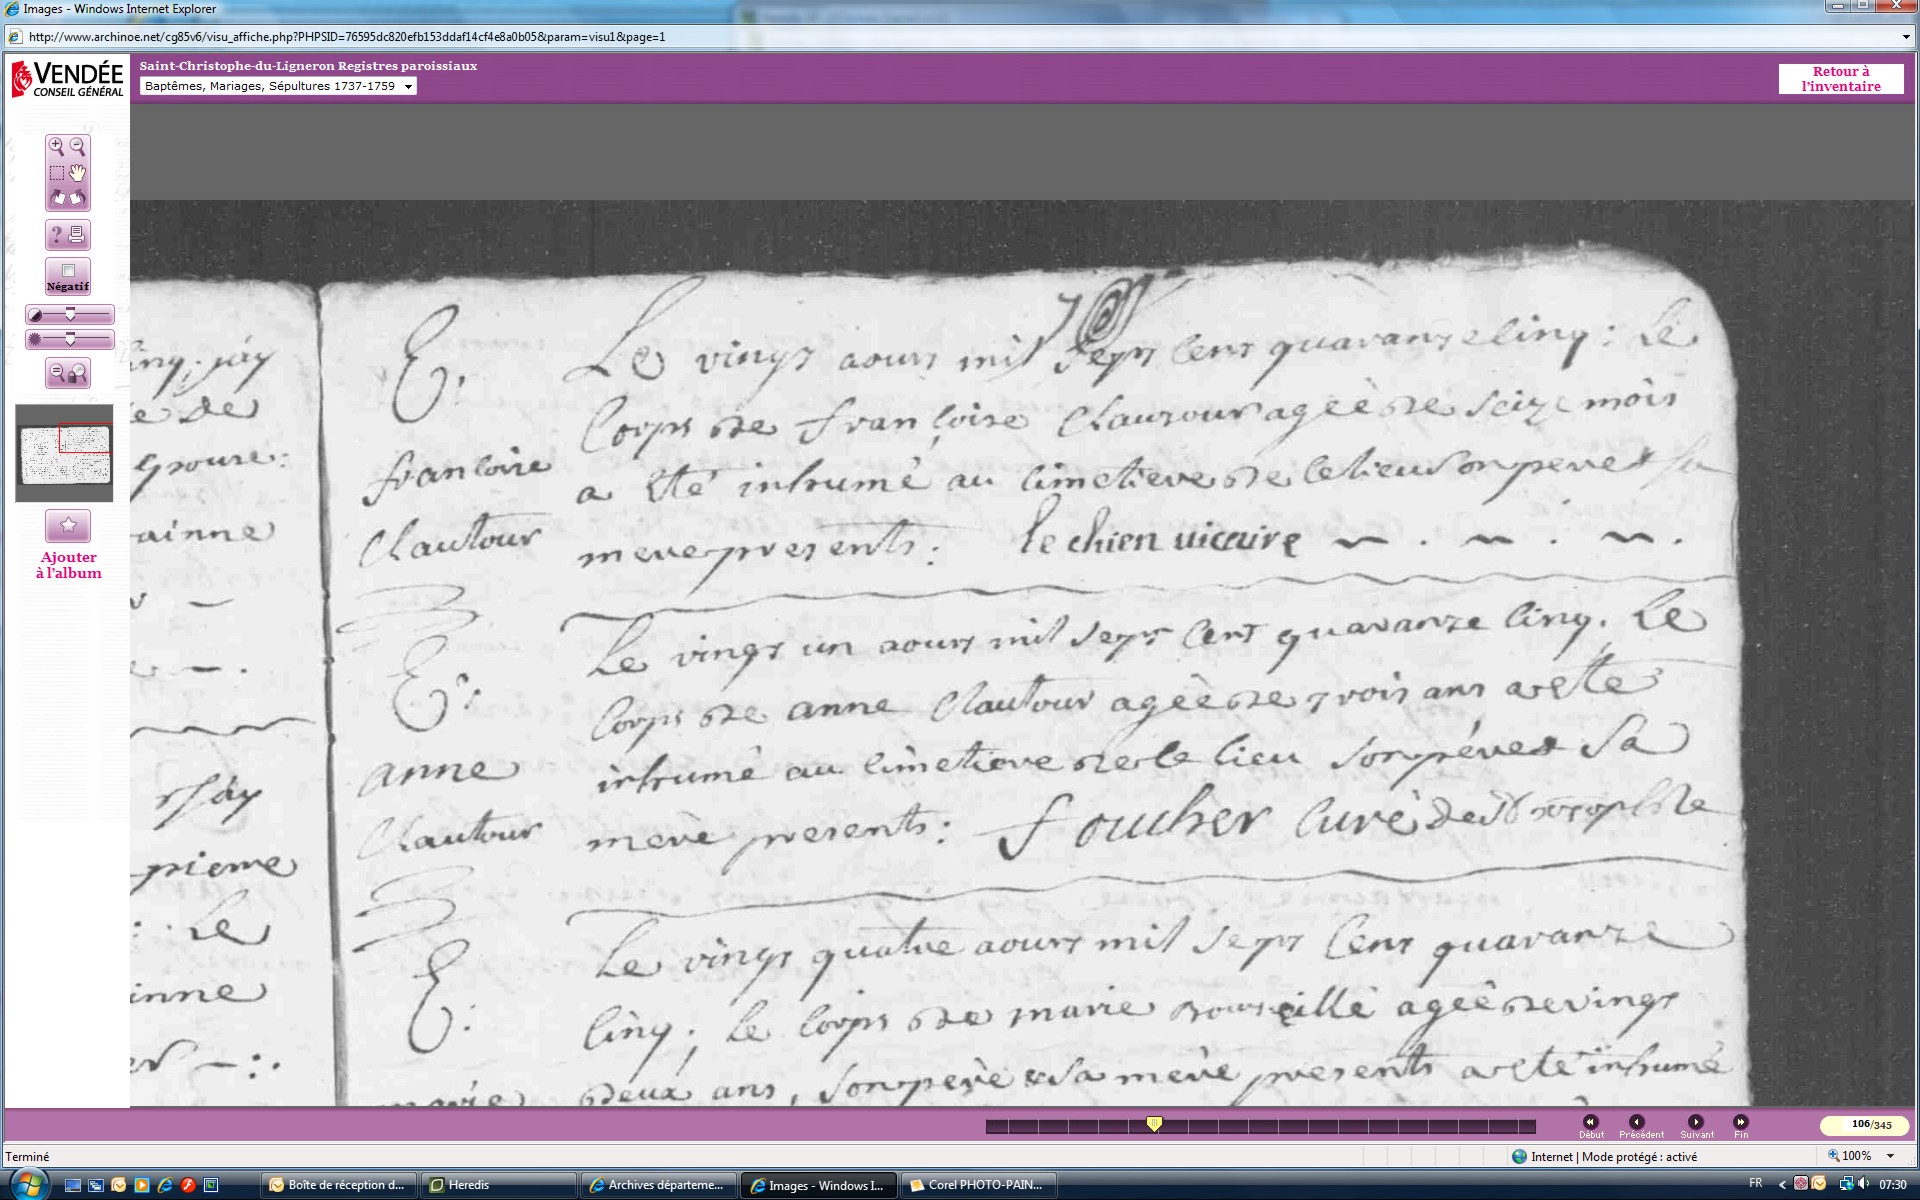 Images - Windows Internet Explorer
http://www.archinoe.net/cg85v6/visu_affiche.php?PHPSID=76595dc820efb153ddaf14cf4e8a0b05&param=visu1&page=1
VENDÉE
CONSEIL GÉNÉRAL
Saint-Christophe-du-Ligneron Registres paroissiaux
Baptêmes, Mariages, Sépultures 1737-1759
Retour à
l'inventaire
Négatif
Ajouter
à l'album
Le vingt aoust mil sept cent quarante cinq : Le
Corps de francoise Clautour ageè de seize mois
francoise
a eté inhumé au cimetiere de ce lieu son pere & sa
Clautour
mere presents : le chien vicaire
Le vingt un aoust mil sept cent quarante cinq. Le
Corps de anne Clautour agèè de trois ans a ete
anne
inhumé au cimetiere de ce lieu son pére & sa
Clautour
mere presents : foucher curè de
Le vingt quatre aoust mil sept Cent quarante
cinq ; Le corps de marie agèè de vingt
marie
deux ans, son pere & sa mere presents a eté inhumé
ainne
pierre
: Le
106/345
Début
Précédent
Suivant
Fin
Terminé
Internet | Mode protégé : activé
100%
Boîte de réception d...
Heredis
Archives départeme...
Images - Windows I...
Corel PHOTO-PAIN...
FR
07:30